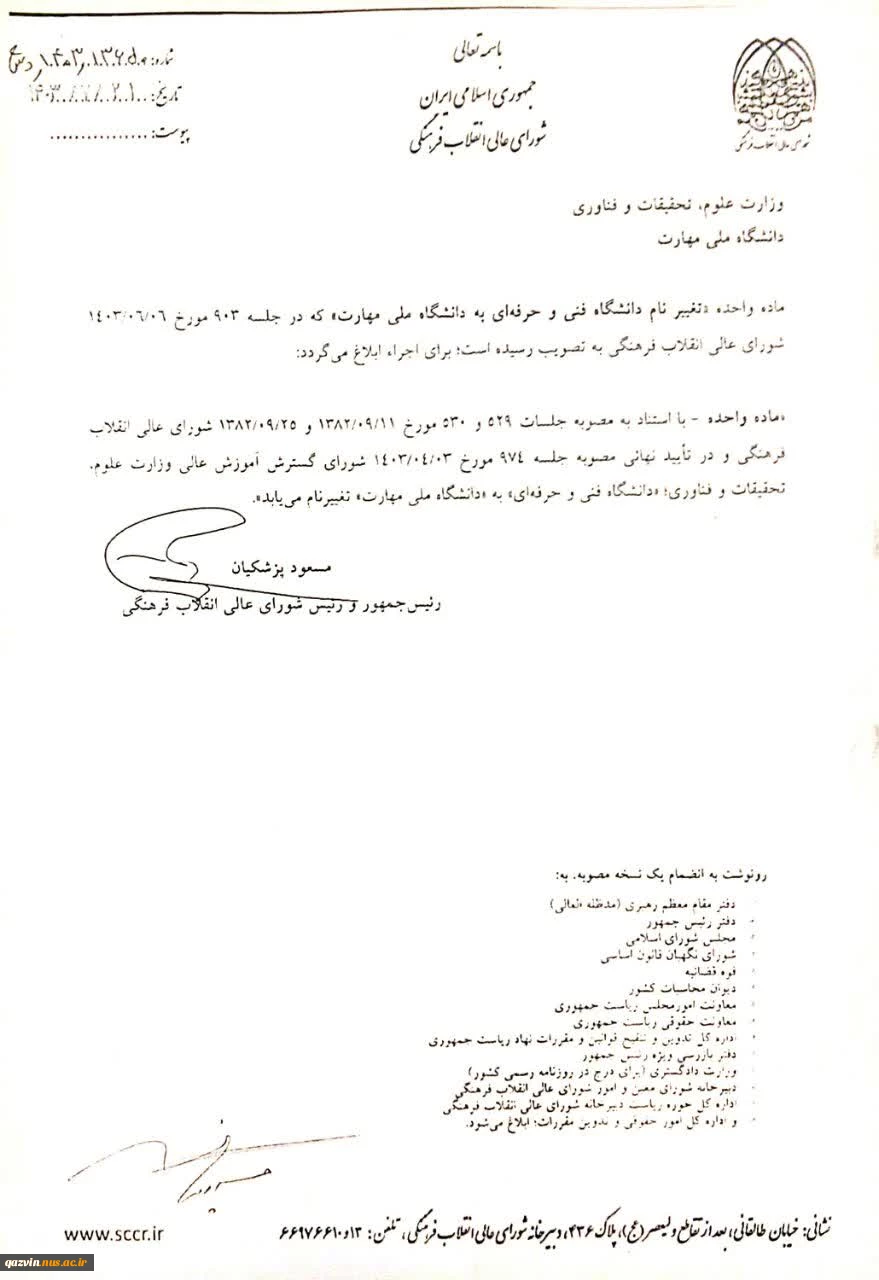 باسمه تعالی
جمهوری اسلامی ایران
شورای عالی انقلاب فرهنگی
شماره:
تاریخ:
پیوست: ................
شورای عالی انقلاب فرهنگی
وزارت علوم، تحقیقات و فناوری
دانشگاه ملی مهارت
ماده واحده «تغییر نام دانشگاه فنی و حرفه‌ای به دانشگاه ملی مهارت» که در جلسه ۹۰۳ مورخ ۱۴۰۳/۰۶/۰۶
شورای عالی انقلاب فرهنگی به تصویب رسیده است؛ برای اجراء ابلاغ می‌گردد:
«ماده واحده - با استناد به مصوبه جلسات ۵۲۹ و ۵۳۰ مورخ ۱۳۸۲/۰۹/۱۱ و ۱۳۸۲/۰۹/۲۵ شورای عالی انقلاب
فرهنگی و در تأیید نهائی مصوبه جلسه ۹۷۴ مورخ ۱۴۰۳/۰۴/۰۳ شورای گسترش آموزش عالی وزارت علوم،
تحقیقات و فناوری؛ «دانشگاه فنی و حرفه‌ای» به «دانشگاه ملی مهارت» تغییرنام می‌یابد».
مسعود پزشکیان
رئیس‌جمهور و رئیس شورای عالی انقلاب فرهنگی
رونوشت به انضمام یک نسخه مصوبه، به:
دفتر مقام معظم رهبری (مدظله العالی)
دفتر رئیس جمهور
مجلس شورای اسلامی
شورای نگهبان قانون اساسی
قوه قضائیه
دیوان محاسبات کشور
معاونت امورمجلس ریاست جمهوری
معاونت حقوقی ریاست جمهوری
اداره کل تدوین و تنقیح قوانین و مقررات نهاد ریاست جمهوری
دفتر بازرسی ویژه رئیس جمهور
وزارت دادگستری (برای درج در روزنامه رسمی کشور)
دبیرخانه شورای معین و امور شورای عالی انقلاب فرهنگی
اداره کل حوزه ریاست دبیرخانه شورای عالی انقلاب فرهنگی
و اداره کل امور حقوقی و تدوین مقررات؛ ابلاغ می‌شود.
نشانی: خیابان طالقانی، بعد از تقاطع ولیعصر (عج)، پلاک ۴۳۶، دبیرخانه شورای عالی انقلاب فرهنگی، تلفن: ۱۳و۶۶۹۷۶۶۱۰
www.sccr.ir
qazvin.nus.ac.ir